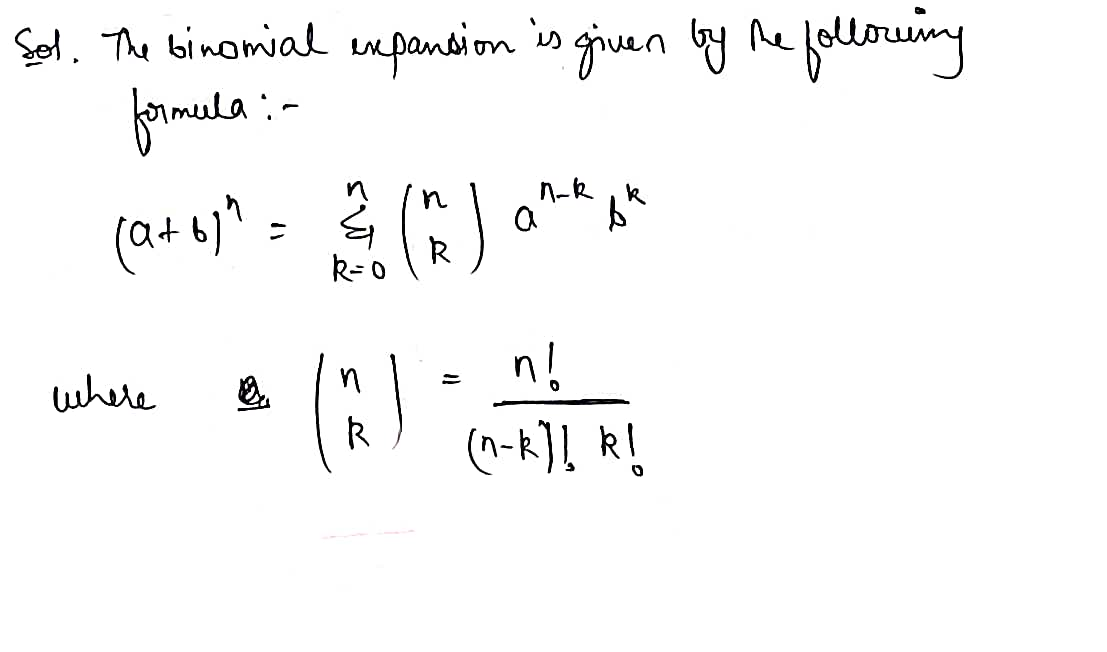 Sol. The binomial expansion is given by the following
formula :-
(a+b)^n = \sum_{k=0}^{n} \binom{n}{k} a^{n-k} b^k
where \binom{n}{k} = \frac{n!}{(n-k)! k!}